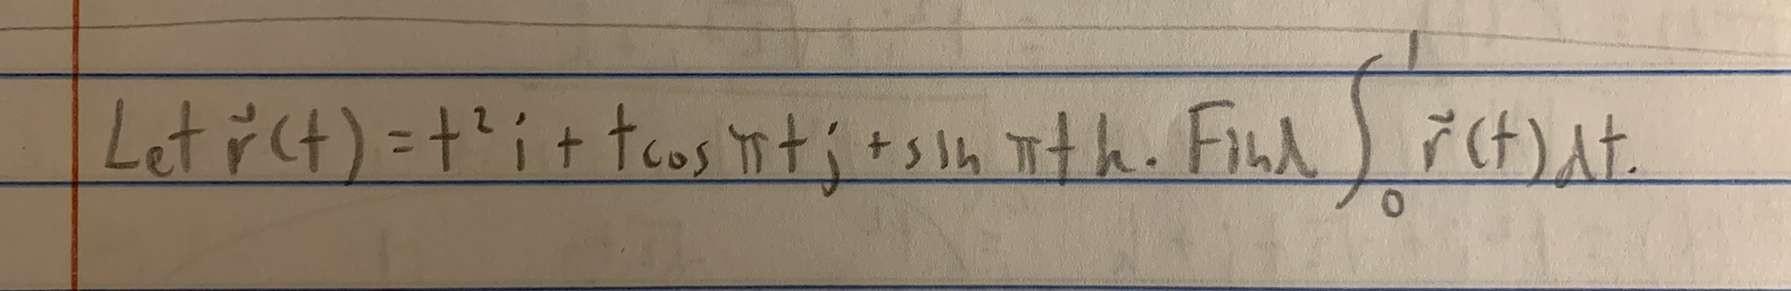 Let r⃗(t) = t² i + t cos πt j + sin πt k. Find ∫₀¹ r⃗(t) dt.